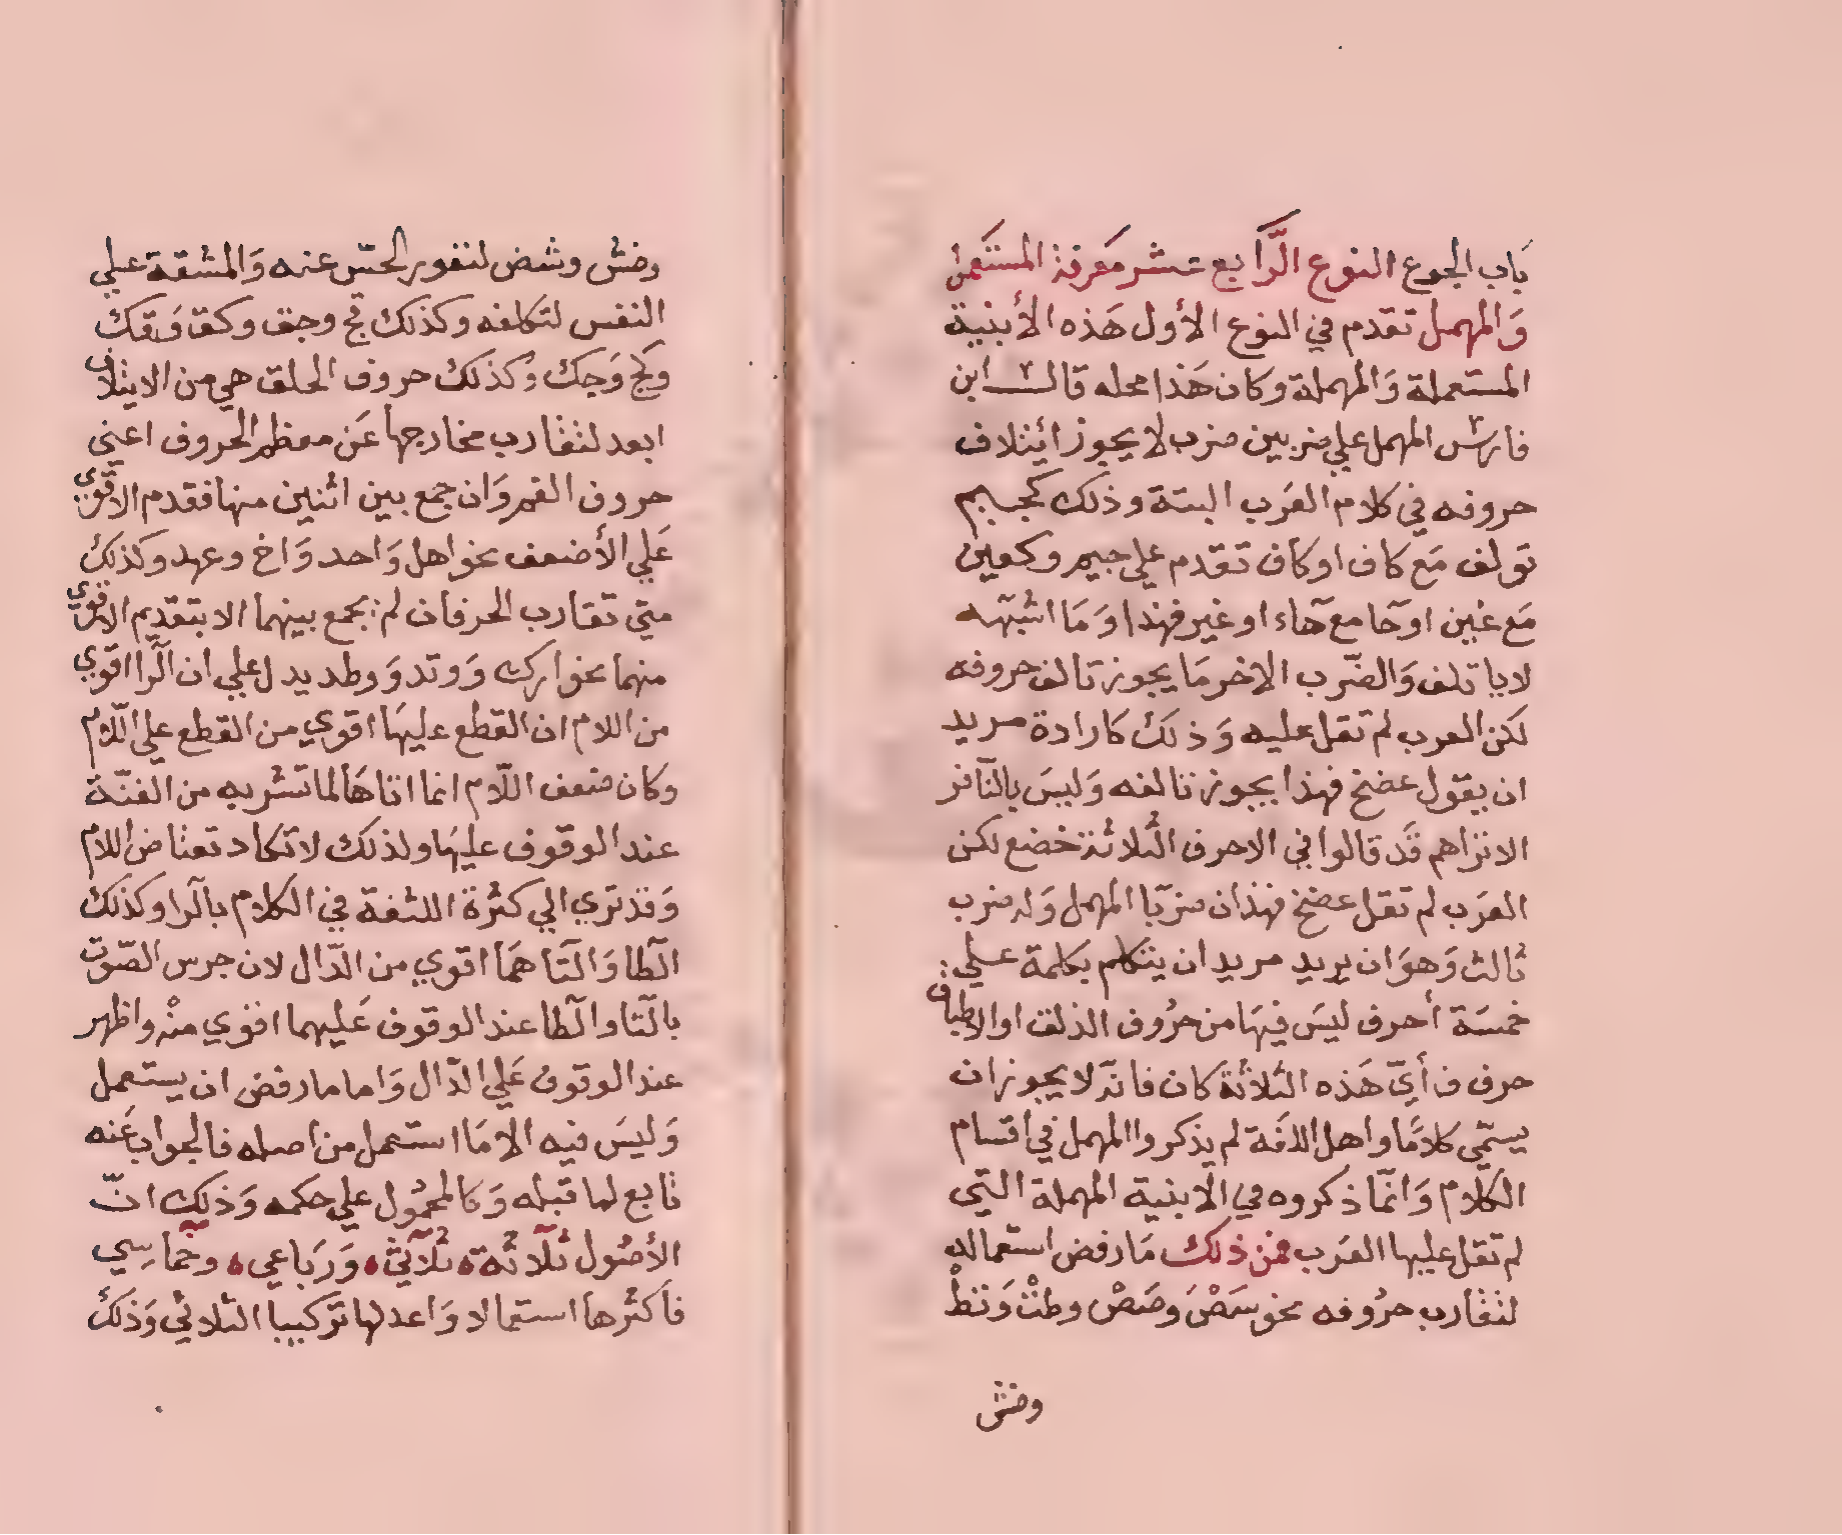 باب الجوع النوع الرَّابع عشر مَعرفة المستَعمل
وَالمهمل تقدم في النوع الأول هَذه الأبنية
المستعملة وَالمهملة وكان هَذا محله قال ابن
فارس المهمل علي ضربين ضرب لا يجوز ائتلاف
حروفه في كلام العَرب البتة وذلك كجيم
تولف مَع كاف او كاف تقدم علي جيم وكعين
مَع غين او حا مع هاء او غير فهذا وَمَا اشبهه
لا ياتلف وَالضّرب الاخر مَا يجوز تالف حروفه
لكن العرب لم تقل عليه وَذلكَ كارادة مريد
ان يقول عضخ فهذا يجوز تالفه وَليسَ بالنّافر
الا تراهم قَد قالوا في الاحرف الثلاثة خضع لكن
العرَب لم تقل عضخ فهذان ضربَا المهمل وَله ضرب
ثالث وَهوَ ان يريد مريد ان يتكلم بكلمة علي
خمسَة أحرف ليسَ فيهَا من حرُوف الذلق او الاطباق
حرف فأيّ هَذه الثلاثة كان فانّه لا يجوز ان
يسمّي كلامًا واهل اللغَة لم يذكروا المهمل في أقسام
الكلام وَانّما ذكروه في الابنية المهملة التي
لم تقل عليها العَرب فمن ذلك مَا رفض استعماله
لتقارب حرُوفه نحو سَصْ وصَسْ وطثْ وَثظْ
وضش
وضش وشض لنفور الحسّ عنه وَالمشقة علي
النفس لتكلفه وكذلك قج وجق وكق وَقك
وكج وَجك وكذلك حروف الحلق هي من الايتلاف
ابعد لتقارب مخارجها عَن معظم الحروف اعني
حروف الفم وَان جمع بين اثنين منها فقدم الاقوي
عَلي الأضعف نحو اهل وَاحد وَاخ وعهد وكذلك
متي تقارب الحرفان لم يجمع بينهما الا بتقديم الاقوي
منهما نحو ارك وَوتد وَوطد يدل علي ان الرّا اقوي
من اللام ان القطع عليهَا اقوي من القطع علي اللّام
وكان ضعف اللّام انما اتاهَا لما تشربه من الغنّة
عند الوقوف عليهَا ولذلك لا تكاد تعتاض اللام
وَقد تري الي كثرة اللثغة في الكلام بالرّا وكذلك
الطّا وَالتّا همَا اقوي من الدّال لان جرس الصّوت
بالتّا والطّا عند الوقوف عَليهما اقوي منْه واظهر
عند الوقوف عَلي الدّال وَاما ما رفض ان يستعمل
وَليسَ فيه الا مَا استعمل من اصله فالجواب عَنه
تابع لما قبله وَكالمحمُول علي حكمه وَذلك انّ
الأصُول ثلاثة ثلاثيّ وَرَباعي وخماسِي
فأكثرها استعمالا وَاعدلها تركيبا الثلاثي وَذلكَ